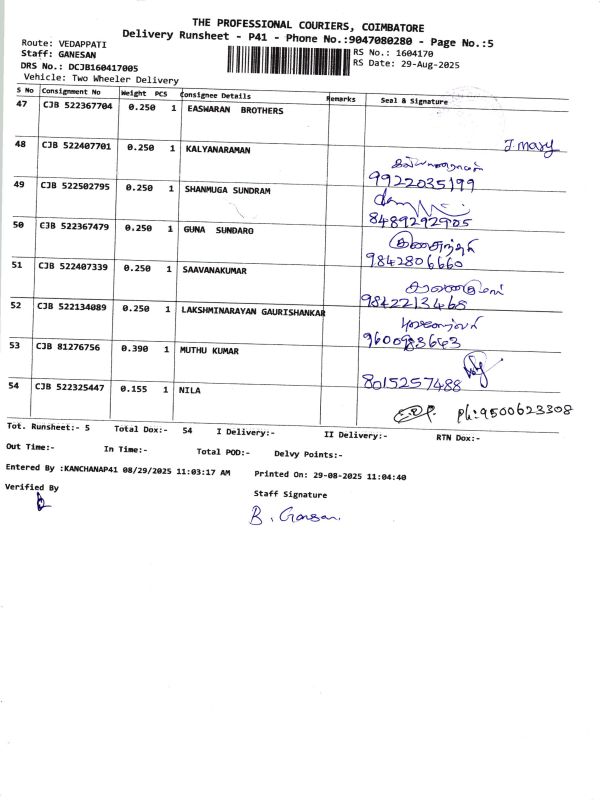 THE PROFESSIONAL COURIERS, COIMBATORE
Delivery Runsheet - P41 - Phone No.:9047080280 - Page No.:5
Route: VEDAPPATI
RS No.: 1604170
Staff: GANESAN
RS Date: 29-Aug-2025
DRS No.: DCJB160417005
Vehicle: Two Wheeler Delivery
S No Consignment No Weight PCS Consignee Details Remarks Seal & Signature
47 CJB 522367704 0.250 1 EASWARAN BROTHERS
J. mary
48 CJB 522407701 0.250 1 KALYANARAMAN
9922035199
49 CJB 522502795 0.250 1 SHANMUGA SUNDRAM
8489292905
50 CJB 522367479 0.250 1 GUNA SUNDARO
9842806660
51 CJB 522407339 0.250 1 SAAVANAKUMAR
9842213468
52 CJB 522134089 0.250 1 LAKSHMINARAYAN GAURISHANKAR
53 CJB 81276756 0.390 1 MUTHU KUMAR
8015257488
54 CJB 522325447 0.155 1 NILA
ph:9500623308
Tot. Runsheet:- 5 Total Dox:- 54 I Delivery:- II Delivery:- RTN Dox:-
Out Time:- In Time:- Total POD:- Delvy Points:-
Entered By :KANCHANAP41 08/29/2025 11:03:17 AM Printed On: 29-08-2025 11:04:40
Verified By
Staff Signature
B. Gansan.